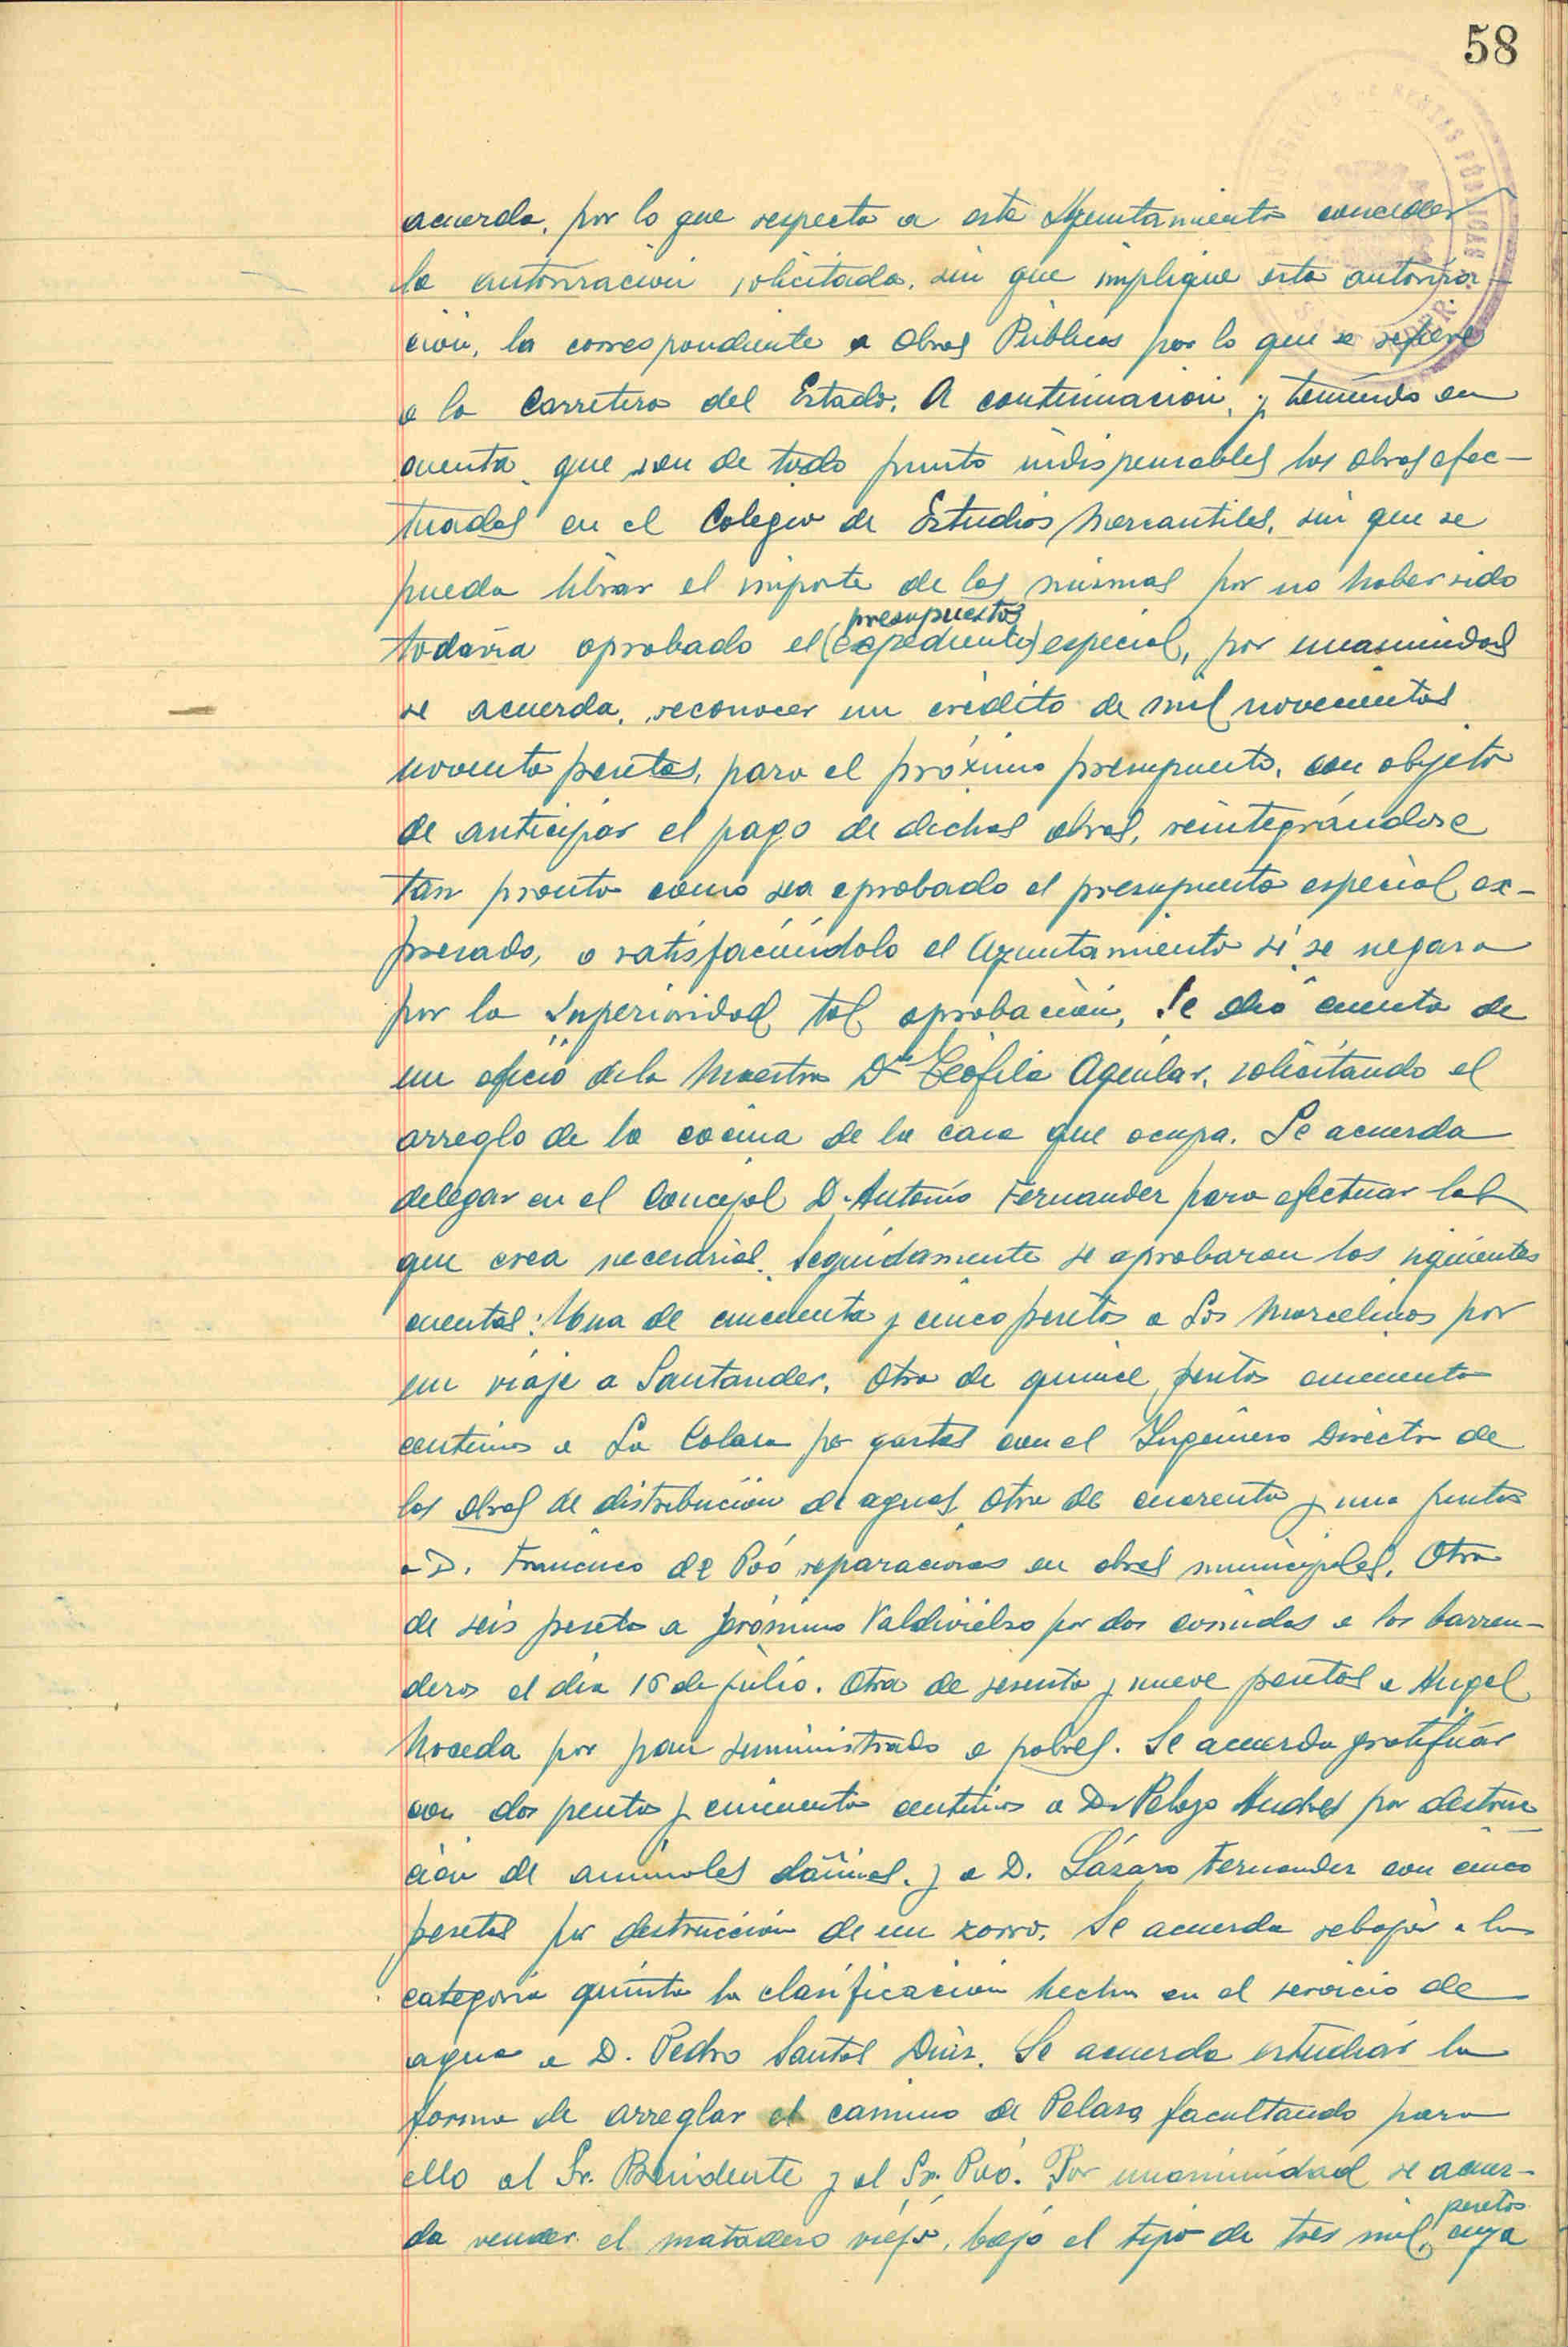 58
ADMINISTRACIÓN DE RENTAS PÚBLICAS
SANTANDER
acuerda, por lo que respecta a este Ayuntamiento conceder
la autorización solicitada, sin que implique esta autoriza-
ción, la correspondiente a Obras Públicas por lo que se refiere
a la Carretera del Estado. A continuación, y teniendo en
cuenta que son de todo punto indispensables las obras efec-
tuadas en el Colegio de Estudios Mercantiles, sin que se
pueda librar el importe de las mismas por no haber sido
presupuesto
todavía aprobado el (expediente) especial, por unanimidad
se acuerda, reconocer un crédito de mil novecientas
noventa pesetas, para el próximo presupuesto, con objeto
de anticipar el pago de dichas obras, reintegrándose
tan pronto como sea aprobado el presupuesto especial ex-
presado, o satisfaciéndolo el Ayuntamiento si se negara
por la Superioridad tal aprobación, Se dió cuenta de
un oficio de la Maestra Dª Teófila Aguilar, solicitando el
arreglo de la cocina de la casa que ocupa. Se acuerda
delegar en el Concejal D. Antonio Fernandez para efectuar las
que crea necesarias. Seguidamente se aprobaron las siguientes
cuentas: Una de cincuenta y cinco pesetas a Los Marcelinos por
un viaje a Santander. Otra de quince pesetas cincuenta
centimos a La Colasa por gastos con el Ingeniero Director de
las obras de distribución de aguas. Otra de cuarenta y una pesetas
a D. Francisco de Poó reparaciones en obras municipales. Otra
de seis pesetas a Jerónimo Valdivielso por dos comidas a los barren-
deros el día 16 de julio. Otra de sesenta y nueve pesetas a Angel
Noceda por pan suministrado a pobres. Se acuerda gratificar
con dos pesetas y cincuenta centimos a D. Pelayo Andres por destruc-
ción de animales dañinos. y a D. Lázaro Fernandez con cinco
pesetas por destrucción de un zorro. Se acuerda rebajar a la
categoría quinta la clasificación hecha en el servicio de
agua a D. Pedro Santos Diez. Se acuerda estudiar la
forma de arreglar el camino de Pelasa facultando para
ello al Sr. Presidente y al Sr. Poó. Por unanimidad se acuer-
pesetas
da vender el matadero viejo, bajo el tipo de tres mil, cuya